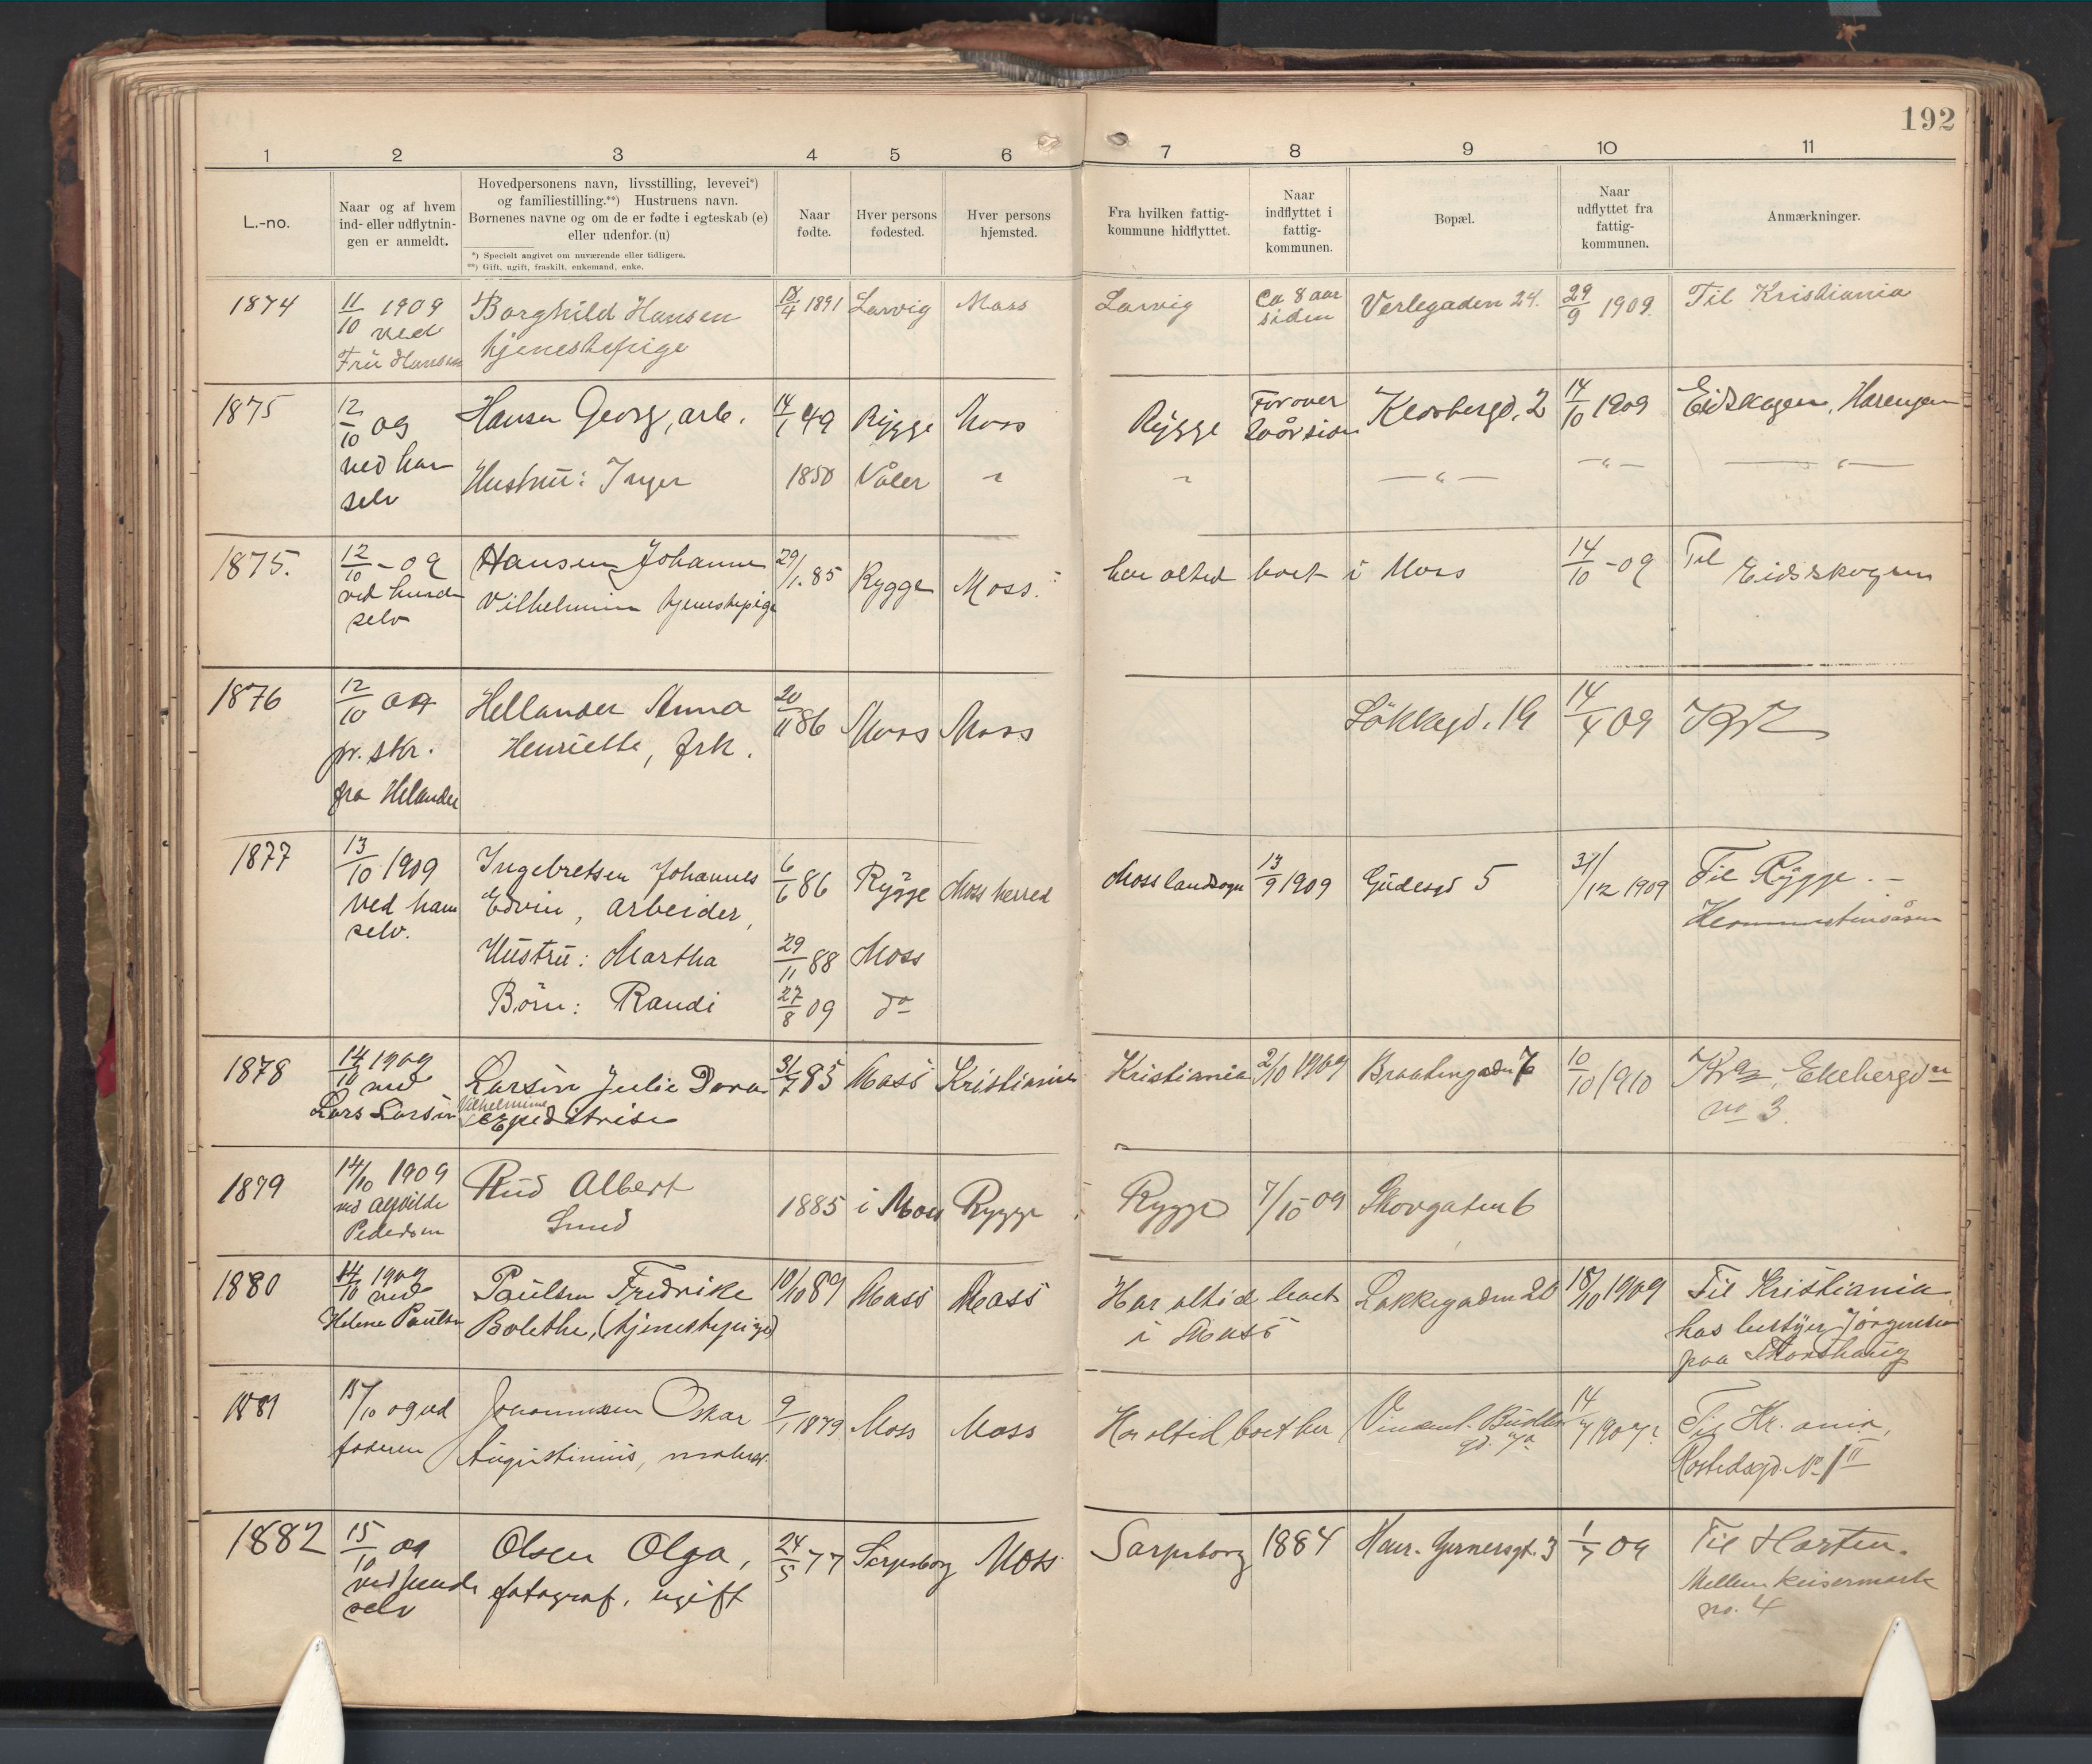 192
1 2 3 4 5 6 7 8 9 10 11
L.-no.
Naar og af hvem
ind- eller udflytnin-
gen er anmeldt.
Hovedpersonens navn, livsstilling, levevei*)
og familiestilling.**) Hustruens navn.
Børnenes navne og om de er fødte i egteskab (e)
eller udenfor. (u)
*) Specielt angivet om nuværende eller tidligere.
**) Gift, ugift, fraskilt, enkemand, enke.
Naar
fødte.
Hver persons
fødested.
Hver persons
hjemsted.
Fra hvilken fattig-
kommune hidflyttet.
Naar
indflyttet i
fattig-
kommunen.
Bopæl.
Naar
udflyttet fra
fattig-
kommunen.
Anmærkninger.
1874 11/10 1909 Borghild Hansen 1891 Larvig Moss Larvig Ca 8 aar Verlegaden 24. 29/9 1909. Til Kristiania
ved tjenestepige siden
Fru Hansen
1875 12/10 09 Hansen Georg, arb. 14/1 49 Rygge Moss Rygge For over 2 14/10 1909 Eidskogen,
ved ham Hustru: Inger 1850 Våler " " — " — — " — — " —
selv
1875. 12/10 - 09 Hansen Johanne 29/1. 85 Rygge Moss. har altid boet i Moss 14/10 - 09 Til Eidsskogen
ved hende Vilhelmine tjenestepige
selv
1876 12/10 09 Hellander Anna 20/11 86 Moss Moss Løkkegd. 19 14/4 09
pr. skr. Henriette, frk.
fra Helander
1877 13/10 1909 Ingebretsen Johannes 6/6 86 Rygge Moss herred Moss landsogn 13/9 1909 Gudesgd 5 31/12 1909 Til Rygge. -
ved ham Edvin, arbeider,
selv. Hustru: Martha 29/11 88 Moss
Børn: Randi 27/8 09 do
1878 14/10 1909 Larsen Julie Dora 31/7 85 Moss Kristiania Kristiania 2/10 1909 Braatengaden 7 10/10 1910 Kra, Ekebergdn
ved Vilhelmine no 3.
Lars Larsen Expeditrise
1879 14/10 1909 Rud Albert 1885 i Moss Rygge Rygge 7/10 09 Skovgaten 6
ved Alvilde Smed
Pedersen
1880 14/10 1909 Paulsen Fredrike 10/10 89 Moss Moss Har altid boet Løkkegaden 20 15/10 1909 Til Kristiania
ved Bolethe, (tjenestepige) i Moss hos bestyrer Jørgensen
Helene Paulsen paa
1881 15/10 09 ved Johannesen Oskar 9/1 1879 Moss Moss Har altid boet her Vincent. Budde 14/7 190 Til Kr.ania,
faderen Augustinius, maler. gd. Rostedsgd. No 1 II
1882 15/10 09 Olsen Olga, 24/5 77 Sarpsborg Moss Sarpsborg 1884 Henr. Gernersgt. 3 1/7 09 Til Horten.
ved hende fotograf, ugift Mellem
selv no. 4